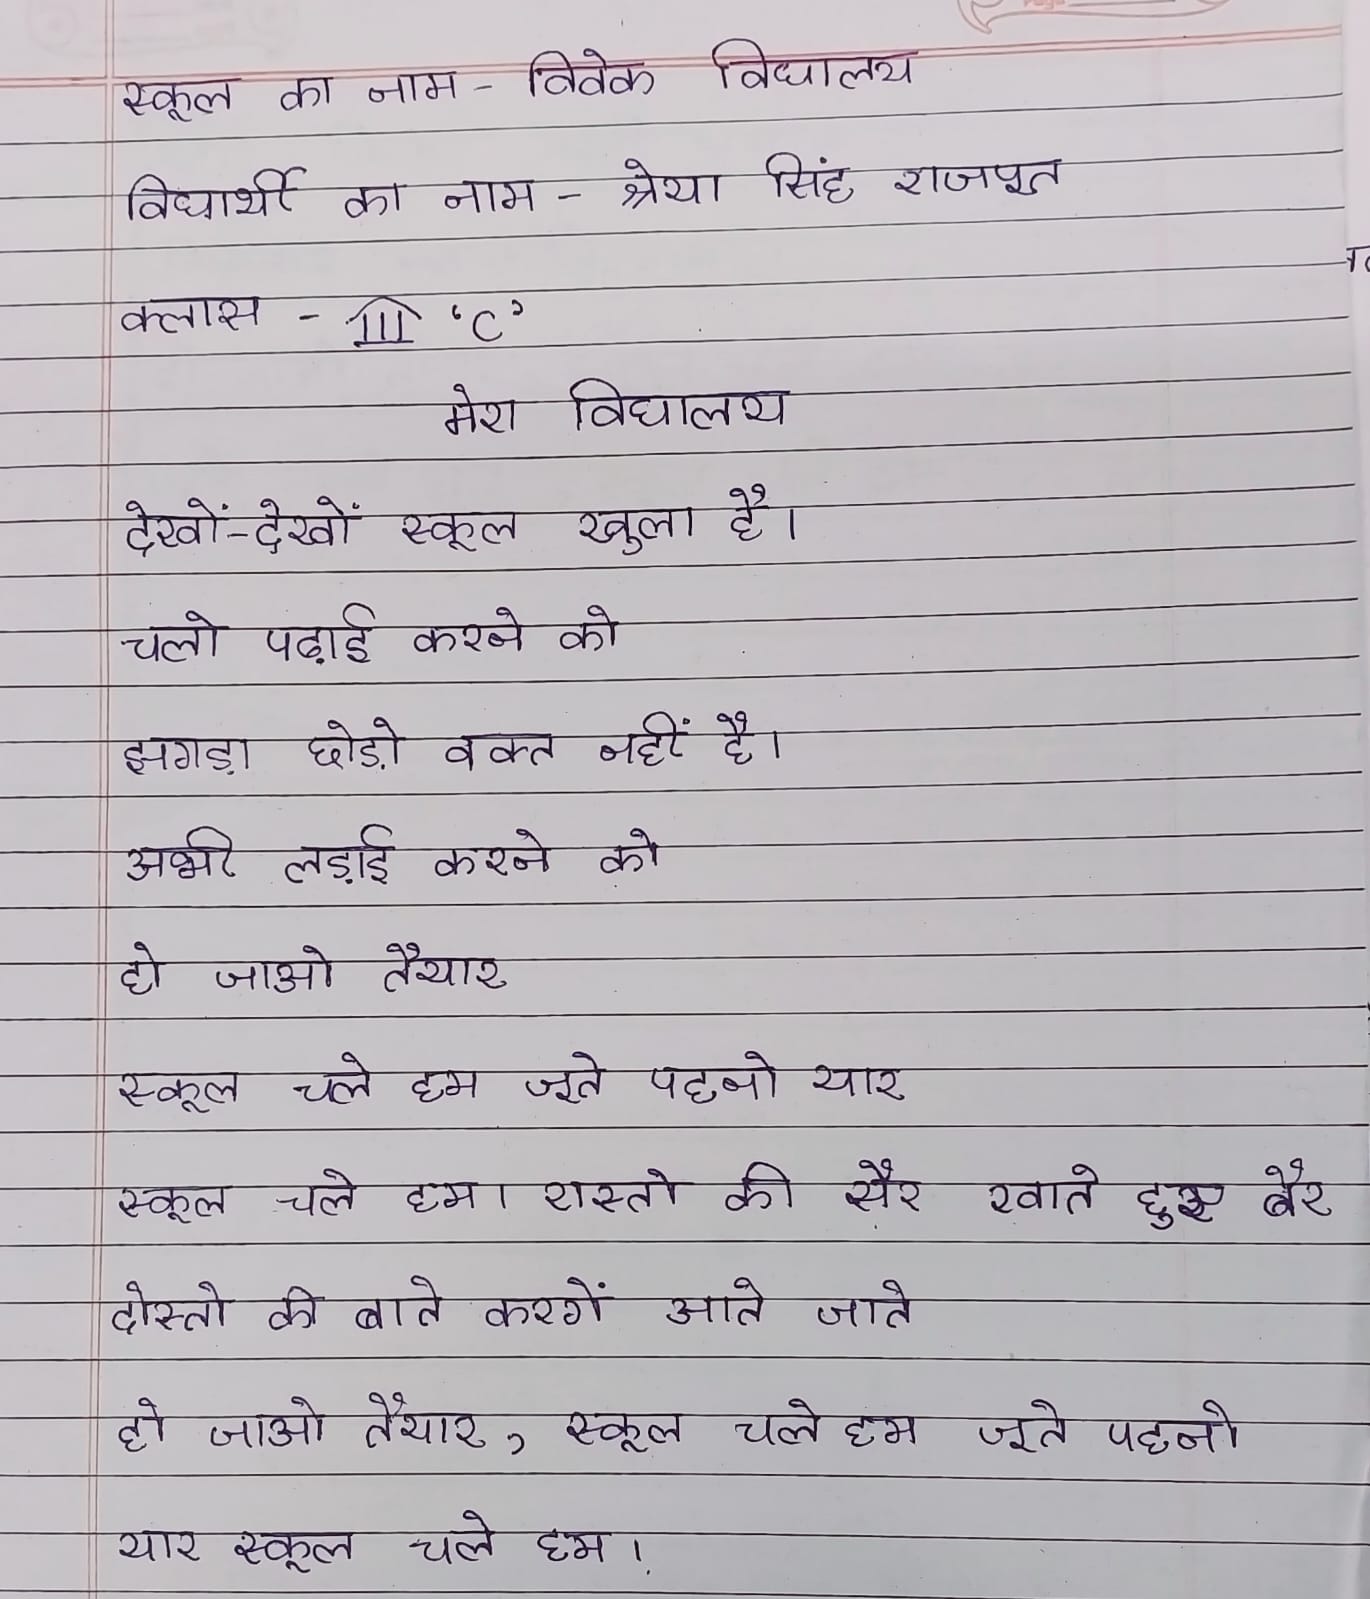 स्कूल का नाम - विवेक विधालय
विधार्थी का नाम - श्रेया सिंह राजपूत
क्लास - III 'C'
मेरा विधालय
देखों-देखों स्कूल खुला है।
चलो पढ़ाई करने को
झगड़ा छोड़ो वक्त नहीं है।
अभी लड़ाई करने को
हो जाओ तैयार
स्कूल चले हम जूते पहनो यार
स्कूल चले हम। रास्तो की सैर खाते हुए बैर
दोस्तो की बाते करगें आते जाते
हो जाओ तैयार, स्कूल चले हम जूते पहनो
यार स्कूल चले हम।